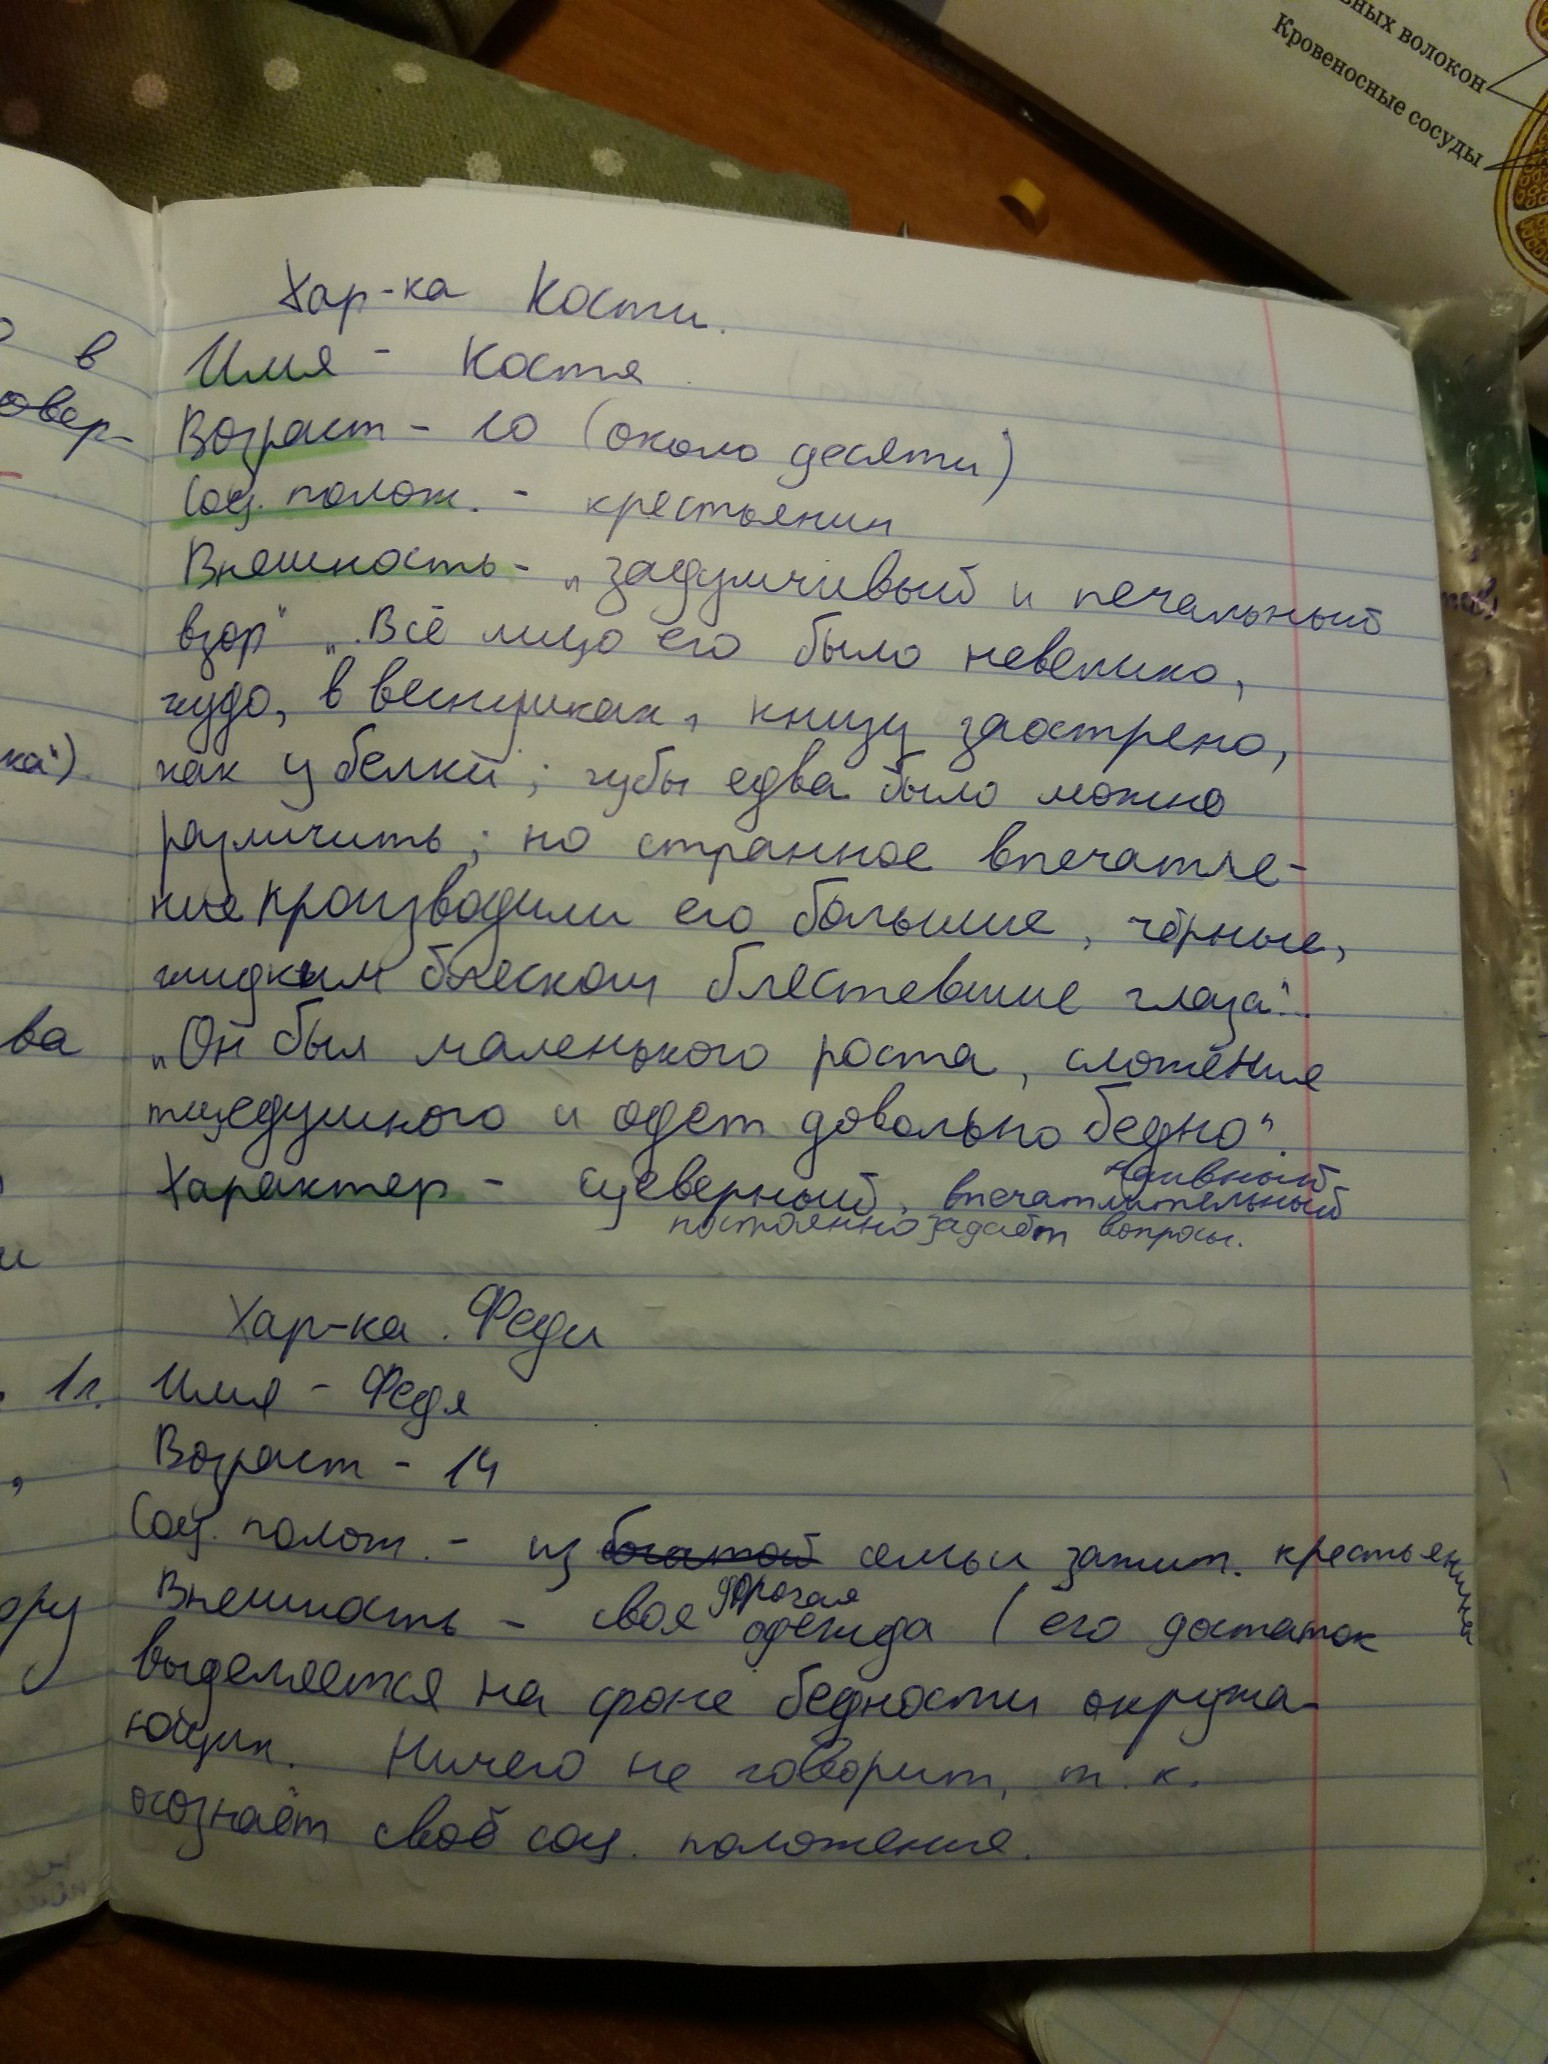 ных волокон
Кровеносные сосуды
Хар-ка Кости.
Имя - Костя
Возраст - 10 (около десяти)
Соц. полож. - крестьянин
Внешность - „задумчивый и печальный
взор" „Всё лицо его было невелико,
худо, в веснушках, книзу заострено,
как у белки; губы едва было можно
различить; но странное впечатле-
ние производили его большие, чёрные,
жидким блеском блестевшие глаза".
„Он был маленького роста, сложения
тщедушного и одет довольно бедно".
Характер - суеверный, наивный впечатлительный
постоянно задаёт вопросы.
Хар-ка Феди
Имя - Федя
Возраст - 14
Соц. полож. - из богатой семьи зажит. крестьянина
Внешность - своя дорогая одежда (его достаток
выделяется на фоне бедности окружа-
ющих. Ничего не говорит, т. к.
осознаёт своё соц. положение.
в
овер-
ка")
ва
и
1л.
,
ору